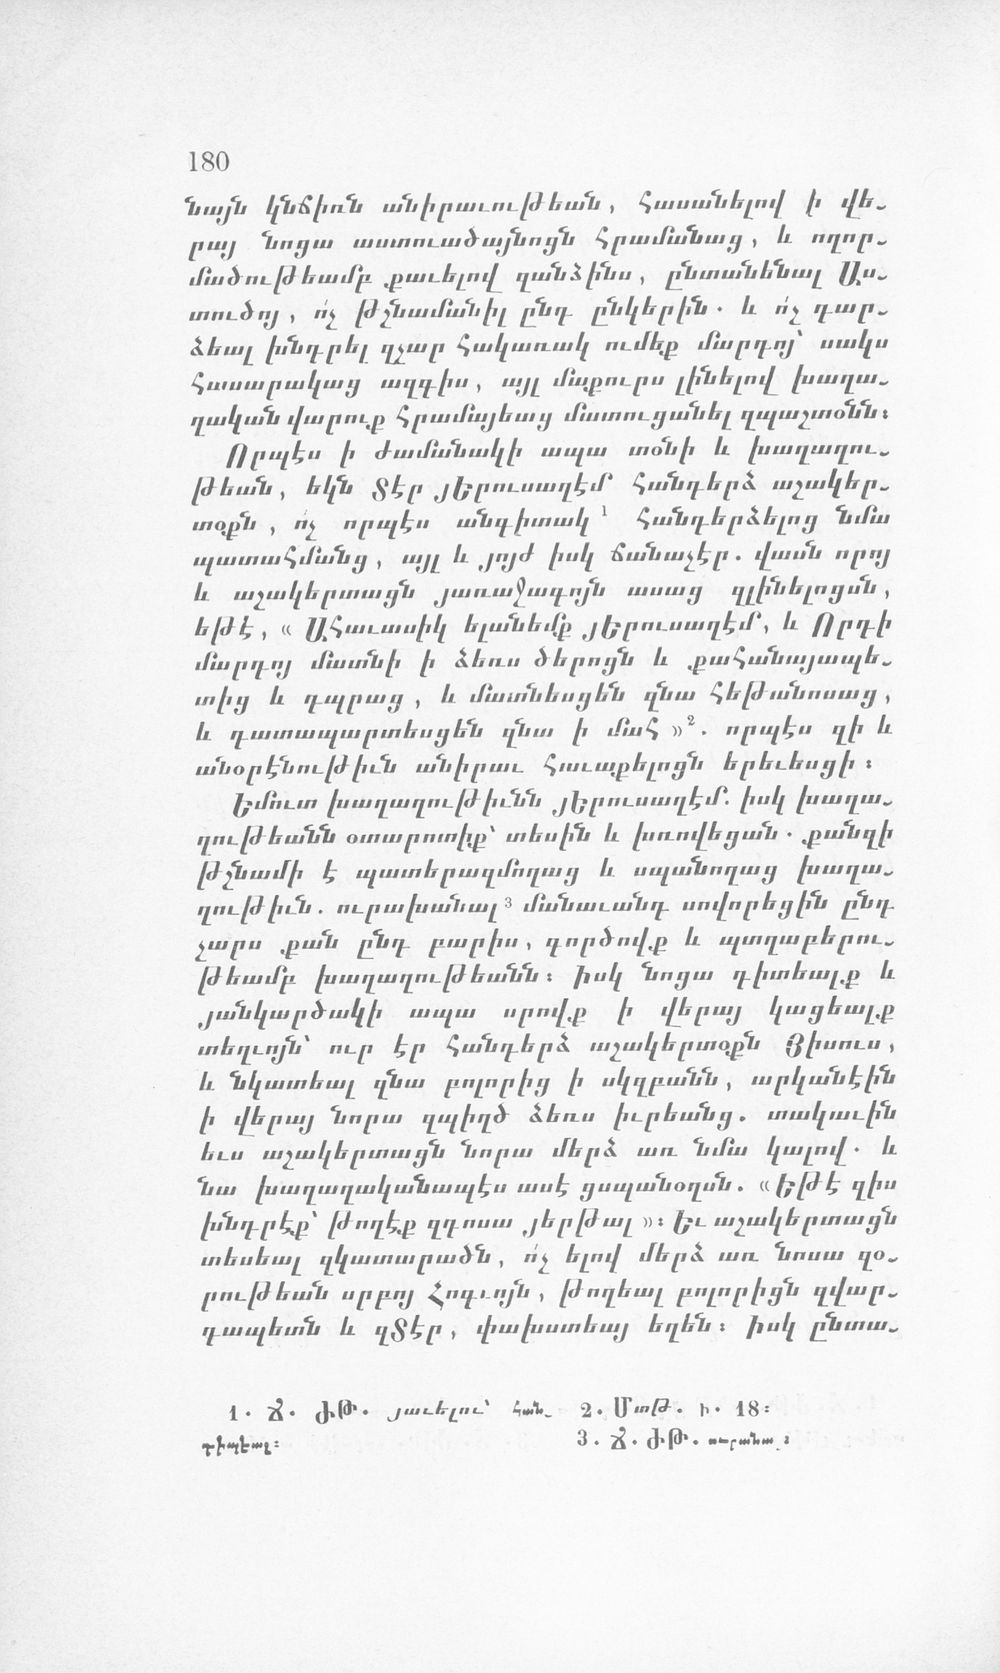 180
նայն կնճիռն անիրաւութեան, հասանելով ի վե-
րայ նոցա աստուածայնոցն հրամանաց, և ողոր-
մածութեամբ քաւելով զանձինս, ընտանենալ Աս-
տուծոյ, ո՛չ թշնամանիլ ընդ ընկերին. և ո՛չ դար-
ձեալ խնդրել զչար հակառակ ումեք մարդոյ՝ սակս
հասարակաց ազգիս, այլ մաքուրս լինելով խաղա-
ղական վարուք հրամայեաց մատուցանել զպաշտօնն։
Որպէս ի ժամանակի ապա տօնի և խաղաղու-
թեան, եկն Տէր յԵրուսաղէմ հանդերձ աշակեր-
տօքն, ո՛չ որպէս անգիտակ ¹ հանդերձելոց նմա
պատահմանց, այլ և յոյժ իսկ ճանաչէր. վասն որոյ
և աշակերտացն յառաջագոյն ասաց զլինելոցսն,
եթէ, « Ահաւասիկ ելանեմք յԵրուսաղէմ, և Որդի
մարդոյ մատնի ի ձեռս ծերոցն և քահանայապե-
տից և դպրաց, և մատնեսցեն զնա հեթանոսաց,
և դատապարտեսցեն զնա ի մահ »². որպէս զի և
անօրէնութիւն անիրաւ հաւաքելոցն երեւեսցի։
Եմուտ խաղաղութիւնն յԵրուսաղէմ. իսկ խաղա-
ղութեանն օտարոտիք՝ տեսին և խռովեցան. քանզի
թշնամի է պատերազմողաց և սպանողաց խաղա-
ղութիւն. ուրախանալ ³ մանաւանդ սովորեցին ընդ
չարս քան ընդ բարիս, գործովք և պտղաբերու-
թեամբ խաղաղութեանն։ Իսկ նոցա դիտեալք և
յանկարծակի ապա սրովք ի վերայ կացեալք
տեղւոյն՝ ուր էր հանդերձ աշակերտօքն Յիսուս,
և նկատեալ զնա բոլորից ի սկզբանն, արկանէին
ի վերայ նորա զպիղծ ձեռս իւրեանց. տակաւին
եւս աշակերտացն նորա մերձ առ նմա կալով. և
նա խաղաղականապէս ասէ ցսպանօղսն. « Եթէ զիս
խնդրէք՝ թողէք զդոսա յերթալ »։ Եւ աշակերտացն
տեսեալ զկատարածն, ո՛չ ելով մերձ առ նոսա զօ-
րութեան սրբոյ Հոգւոյն, թողեալ բոլորիցն զվար-
դապետն և զՏէր, փախստեայ եղեն։ Իսկ ընտա-
1. Ճ. ԺԹ. յաւելու՝ հան-
դիպեալ։
2. Մտթ. Ի. 18։
3. Ճ. ԺԹ.